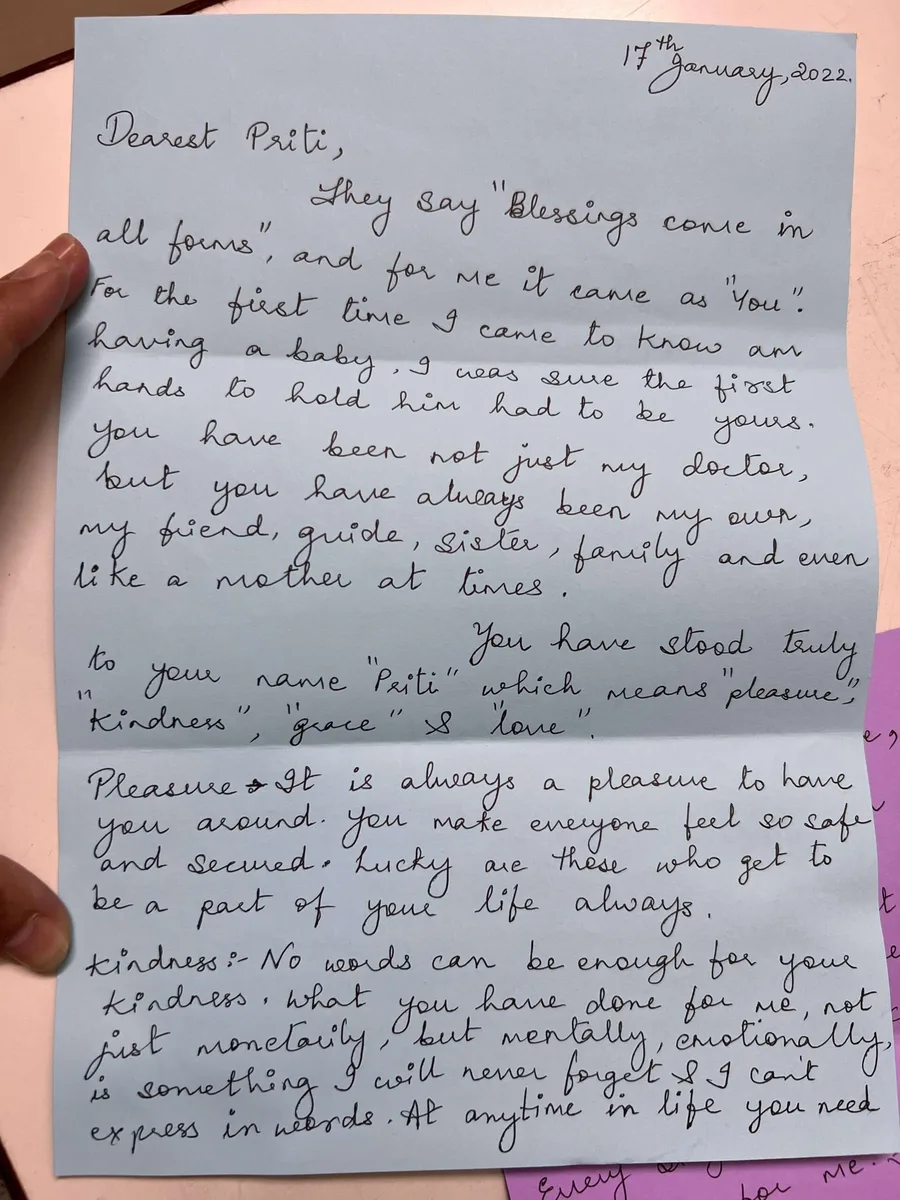 17th January, 2022.
Dearest Priti,
They say "Blessings come in
all forms", and for me it came as "You".
For the first time I came to know am
having a baby, I was sure the first
hands to hold him had to be yours.
You have been not just my doctor,
but you have always been my own,
my friend, guide, sister, family and even
like a mother at times.
You have stood truly
to your name "Priti" which means "pleasure",
"Kindness", "grace" & "love".
Pleasure → It is always a pleasure to have
you around. You make everyone feel so safe
and secured. Lucky are those who get to
be a part of your life always.
Kindness:- No words can be enough for your
kindness. What you have done for me, not
just monetarily, but mentally, emotionally,
is something I will never forget & I can't
express in words. At anytime in life you need
Every
for me.